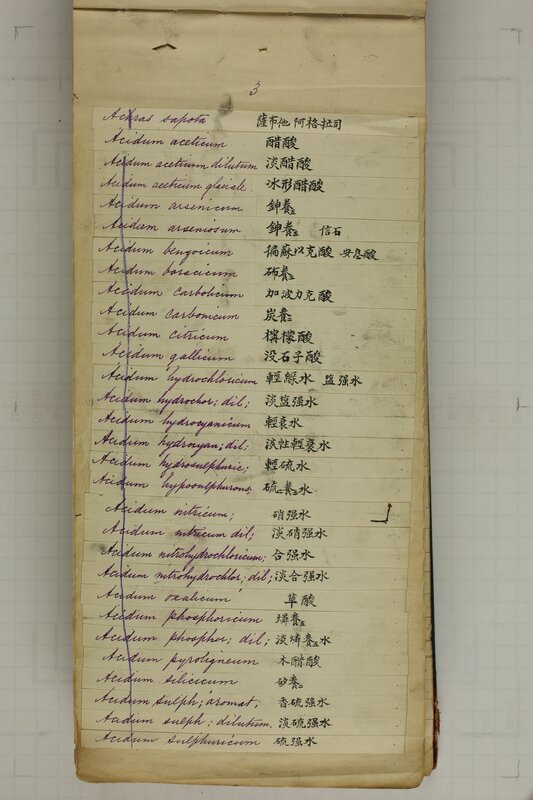 3
Achras sapota 薩布他 阿格拉司
Acidum aceticum 醋酸
Acidum aceticum dilutum 淡醋酸
Acidum aceticum glaciale 冰形醋酸
Acidum arsenicum 鉮養五
Acidum arseniosum 鉮養三 信石
Acidum benzoicum 徧蘇以克酸 安息酸
Acidum boracicum 𥑻養三
Acidum carbolicum 加波力克酸
Acidum carbonicum 炭養二
Acidum citricum 檸檬酸
Acidum gallicum 没石子酸
Acidum hydrochloricum 輕綠水 盐强水
Acidum hydrochlor; dil; 淡盐强水
Acidum hydrocyanicum 輕衰水
Acidum hydrocyan; dil; 淡性輕衰水
Acidum hydrosulphuric; 輕硫水
Acidum hyposulphurous; 硫二養二水
Acidum nitricum; 硝强水
Acidum nitricum dil; 淡硝强水
Acidum nitrohydrochloricum; 合强水
Acidum nitrohydrochlor; dil; 淡合强水
Acidum oxalicum 草酸
Acidum phosphoricum 燐養五
Acidum phosphor; dil; 淡燐養五水
Acidum pyroligneum 木醋酸
Acidum silicicum 矽養三
Acidum sulph; aromat; 香硫强水
Acidum sulph; dilutum, 淡硫强水
Acidum sulphuricum 硫强水